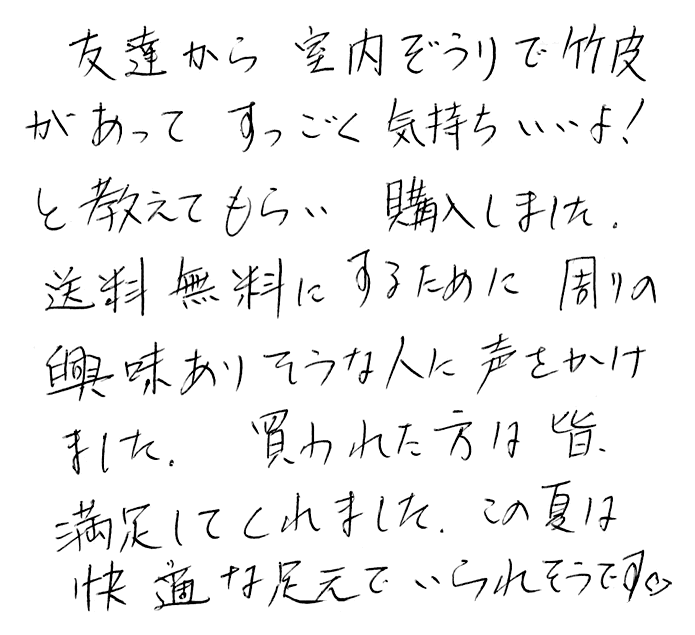 友達から 室内ぞうりで竹皮
があって すっごく 気持ちいいよ!
と教えてもらい 購入しました.
送料無料に するために 周りの
興味ありそうな人に 声をかけ
ました. 買われた方は皆、
満足してくれました. この夏は
快適な足元で いられそうです♡